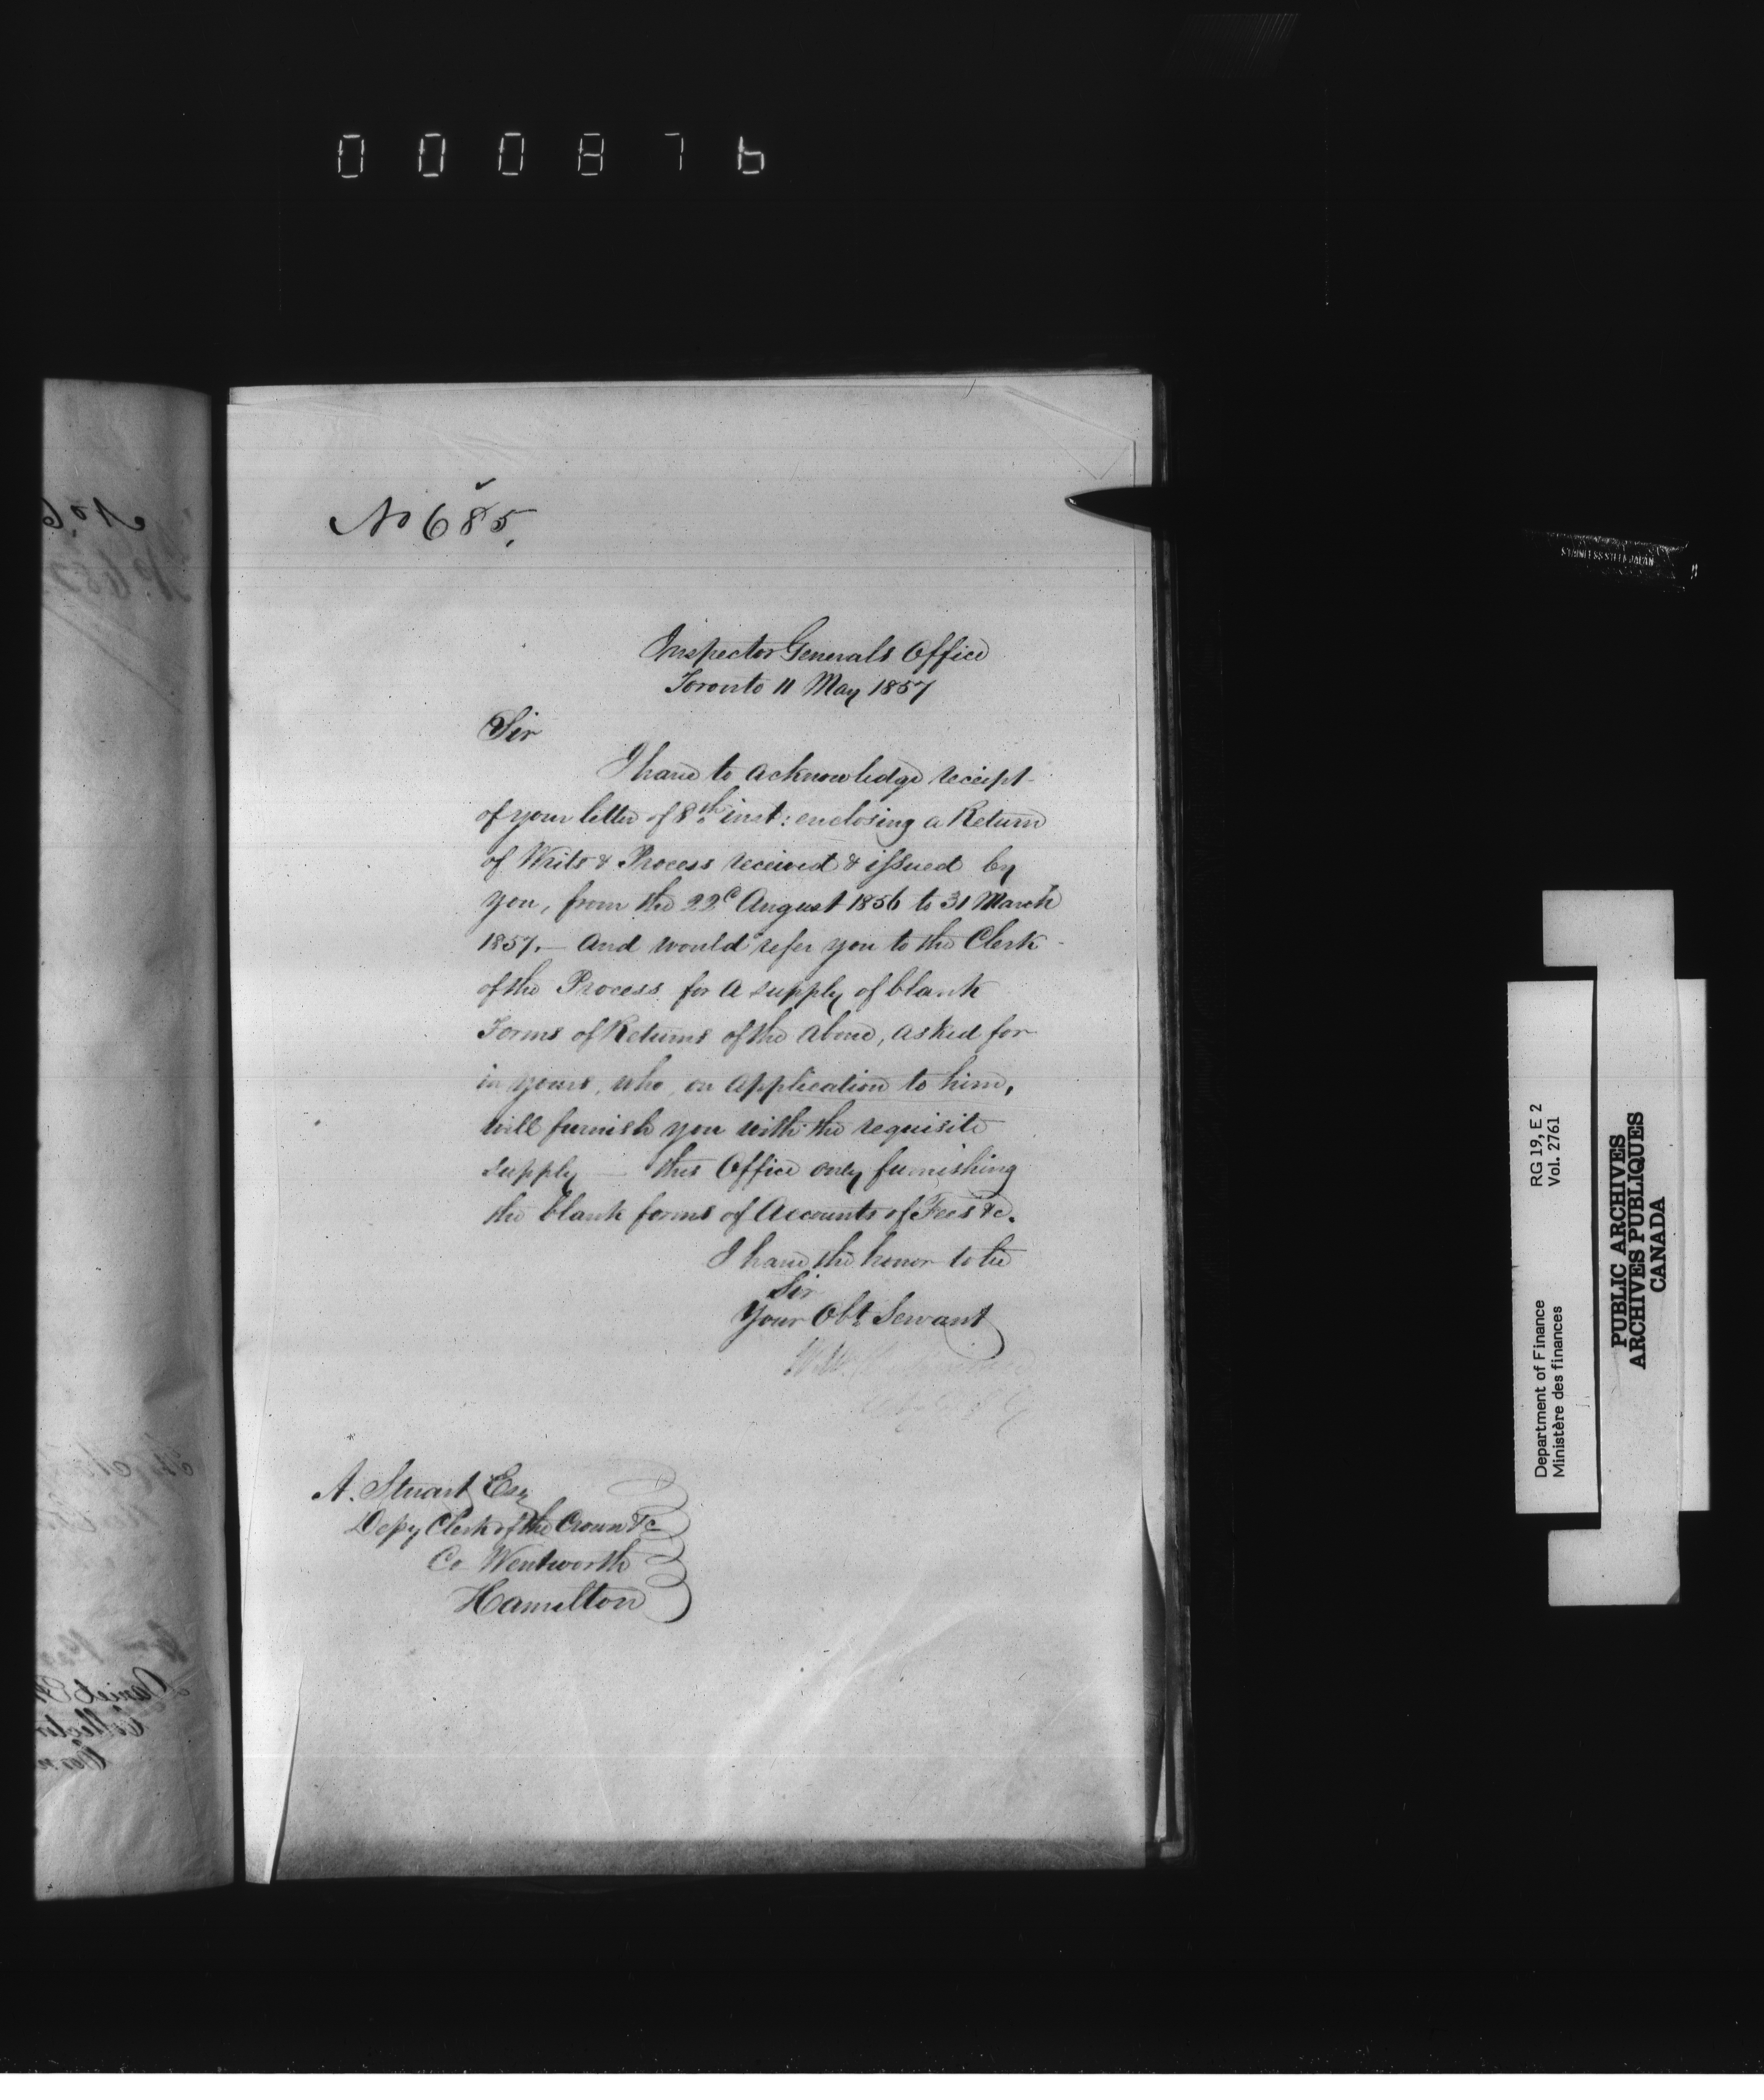 000876
No 685.
Inspector Generals Office
Toronto 11 May 1857
Sir
I have to acknowledge receipt
of your letter of 8th inst: enclosing a Return
of Writs & Process received & issued by
you, from the 22d August 1856 to 31 March
1857. — And would refer you to the Clerk
of the Process for a supply of blank
Forms of Returns of the above, asked for
in yours, who, on application to him,
will furnish you with the requisite
supply — this Office only furnishing
the blank forms of Accounts of Fees &c.
I have the honor to be
Sir
Your Obt Servant
A. Stuart Esq
Depy Clerk of the Crown &c
Co Wentworth
Hamilton
STAINLESS STEEL JAPAN
Department of Finance RG 19, E 2
Ministère des finances Vol. 2761
PUBLIC ARCHIVES
ARCHIVES PUBLIQUES
CANADA